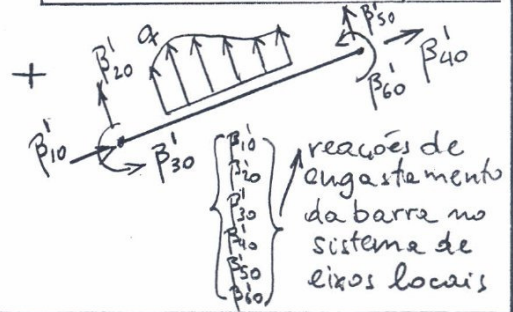 +
q
β'20
β'10
β'30
β'50
β'40
β'60
{β'10
β'20
β'30
β'40
β'50
β'60}
reações de
engastamento
da barra no
sistema de
eixos locais